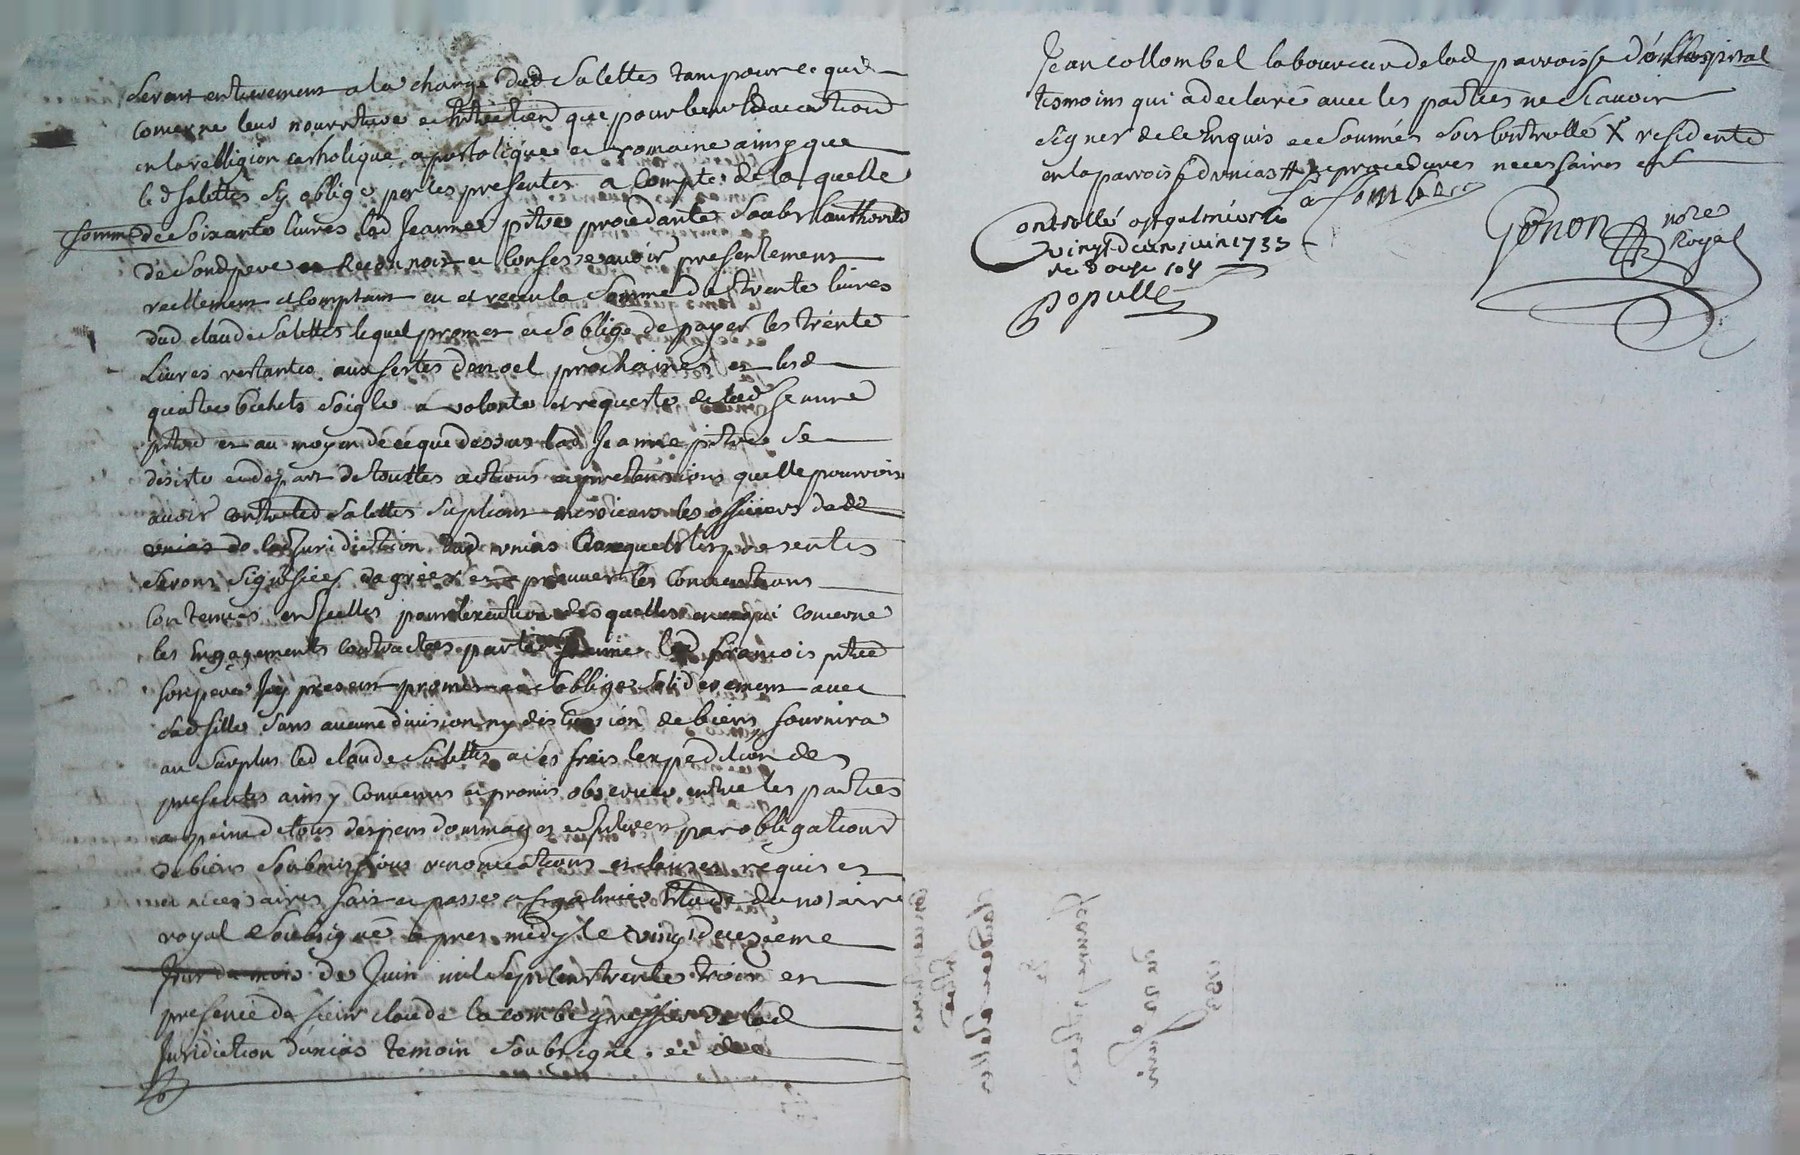 Seront entierement a la charge dud Salettes tam pour ce qui
concerne leur nourriture et Entretien que pour leur Education
en la relligion catholique apostolique et romaine ainsy que
led Salettes sy oblige par les presentes a Compte de la quelle
somme de Soixante livres lad Jeanne pitre procedante Soubs lauthorité
de Sond pere Reconnoit et Confesse avoir presentement
reellement et Comptant eu et receu la Somme de trente livres
dud claude Salettes lequel promet et soblige de payer les trente
Livres restantes aux festes de noel prochaines et lesd
quatre bichets Soigle a volonte et requeste de lad Jeanne
pitre et au moyen de ce que dessus lad Jeanne pitre se
desiste et depart de touttes actions et pretentions quelle pourroit
avoir contre led Salettes Supliant messieurs les officiers de
de lad Juridiction dud unias auxquels les presentes
Seront Signifiées dagréer et aprouver les Conventions
Contenues en Icelles pour lexecution des quelles en ce qui concerne
les Engagements contractes par Jeanne led francois pitre
son pere Icy present promet et soblige Solidairement avec
sad fille sans aucune division ny discution de biens fournira
au surplus led claude Salettes a ses frais lexpedition des
presentes ainsy Convenus et promis observer entre les parties
a peine de tous despens dommages et par obligations
de biens Soubmissions renonciations et clauses requises
et necessaires fait et passé a St galmier Etude du notaire
royal Soubsigné apres midy le vingt deuxieme
Jour du mois de Juin mil sept cent trente trois en
presence de sieur claude lacombe greffier de lad
Juridiction dunias temoin Soubsigné et de
Jean Collombel laboureur de lad parroisse
tesmoins qui a declaré avec les parties ne Scavoir
signer de ce Enquis et Sommés soit Controllé X residente
en la parroisse dunias # procedures necessaires
Lacombe
Gonon nore
Royal
Controllé a St galmier le
vingt deux juin 1733
re douze sols
Populle